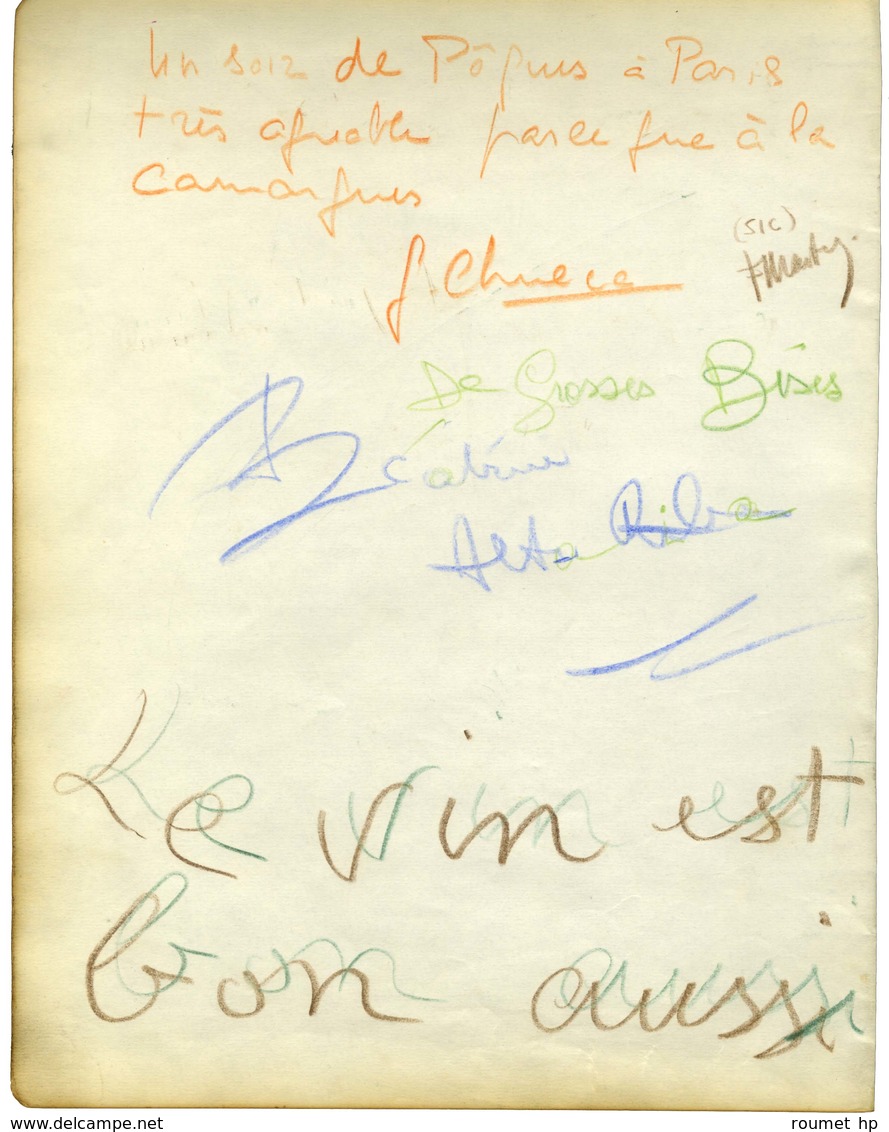 Un soir de Pâques à Paris
très agréable parce que à la
Camargues
(SIC)
De Grosses Bises
Béatrice
Alta Riba
Le vin est
bon aussi
www.delcampe.net
roumet hp